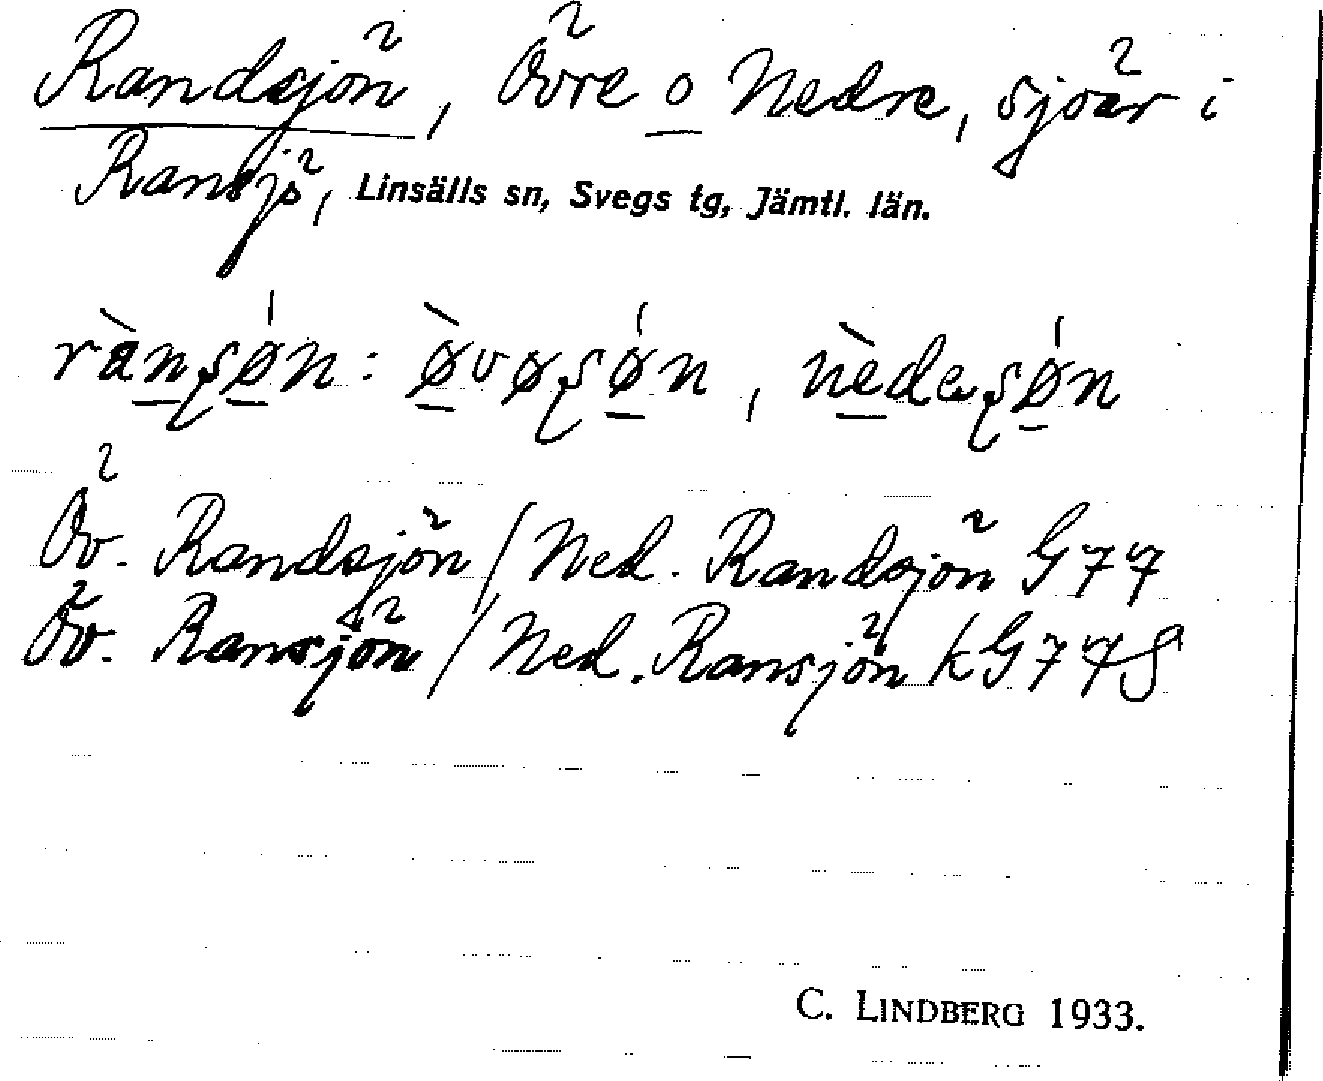 Randsjön, Övre o Nedre, sjöar i
Ransjö, Linsälls sn, Svegs tg, Jämtl. län.
rànʂø̀n: ø̀vøʂøn, nèdeʂøn
Öv. Randsjön / Ned. Randsjön G77
Öv. Ransjön / Ned. Ransjön kG77S
C. LINDBERG 1933.